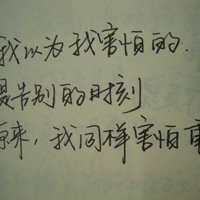 我以为我害怕的.
是告别的时刻
原来，我同样害怕重